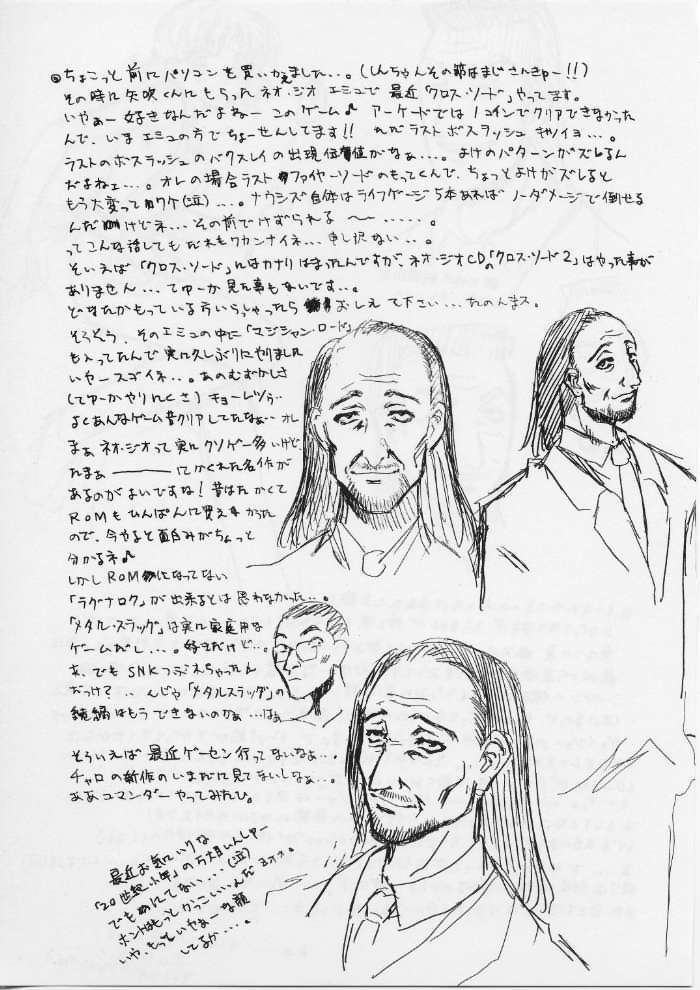 ◎ちょこっと前にパソコンを買いかえました...。(しんちゃんその節はまじさんきゅー!!)
その時に矢吹くんにもらったネオ・ジオエミュで最近「クロス・ソード」やってます。
いやぁー好きなんだよねーこのゲーム♪ アーケードでは1コインでクリアできなかった
んで、いまエミュの方でちょーせんしてます!! ただラストボスラッシュ キツイヨ...。
ラストのボスラッシュのバクスレイの出現位置がなぁ...。よけのパターンがズレるん
だよねェ...。オレの場合ラストファイヤーソードのもってくんで、ちょっとよけがズレると
もう大変ってワケ(泣)...。ナウシズ自体はライフゲージ5本あればノーダメージで倒せる
んだけどネ...その前でけずられる 〜 .....。
ってこんな話してもだれもワカンナイネ...申し訳ない..。
そいえば「クロス・ソード」にはカナリはまったんですが、ネオ・ジオCDの「クロス・ソード2」はやった事が
ありません...てゆーか見た事もないです..。
どなたかもっている方いらっしゃったらおしえて下さい...たのんます。
そうそう、そのエミュの中に「マジシャン・ロード」
も入ってたんで実に久しぶりにやりました
いやースゴイネ..。あのむずかしさ
(てゆーかやりにくさ)キョーレツぅ..
よくあんなゲーム昔クリアしてたなぁ..オレ
まぁネオ・ジオって実にクソゲー多いけど
たまぁ―――にかくれた名作が
あるのがよいですね!昔はたかくて
ROMもひんぱんに買えなかった
ので、今やると面白みがちょっと
分かるネ♪
しかしROMになってない
「ラグナロク」が出来るとは思わなかった..。
「メタル・スラッグ」は実に家庭用な
ゲームだし...。好きだけど..。
あ、でもSNKつぶれちゃったん
だっけ?.. んじゃ「メタルスラッグ」の
続編はもうできないのかぁ...はぁ
そういえば最近ゲーセン行ってないなぁ..。
チャロの新作のいまだに見てないしなぁ...。
ああコマンダーやってみたひ。
最近お気にいりな
「20世紀少年」の万丈目しんしすー
でもにてない...(泣)
ホントはもっとかっこいいんだヨォォ。
いや、もっといやぁーな顔
してるか...。